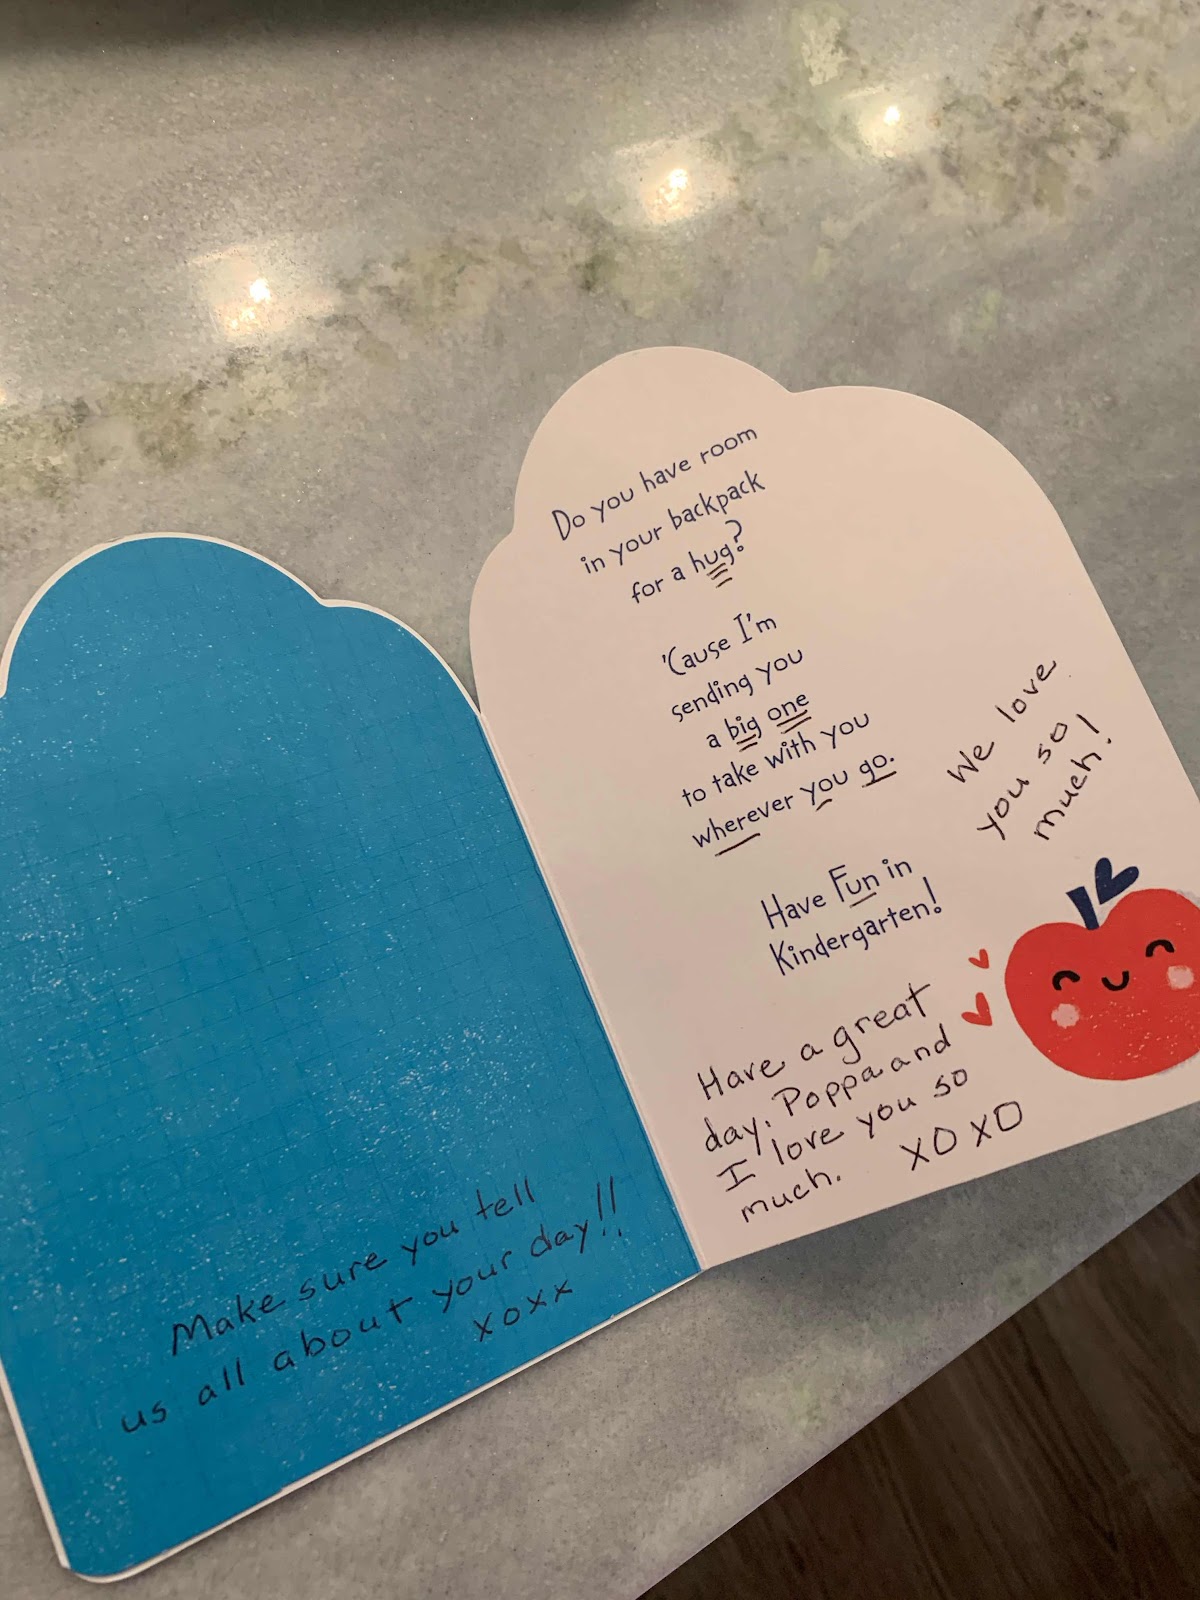 Make sure you tell
us all about your day!!
xoxx
Do you have room
in your backpack
for a hug?
'Cause I'm
sending you
a big one
to take with you
wherever you go.
Have Fun in
Kindergarten!
We love
you so
much!
Have a great
day. Poppa and
I love you so
much. XOXO